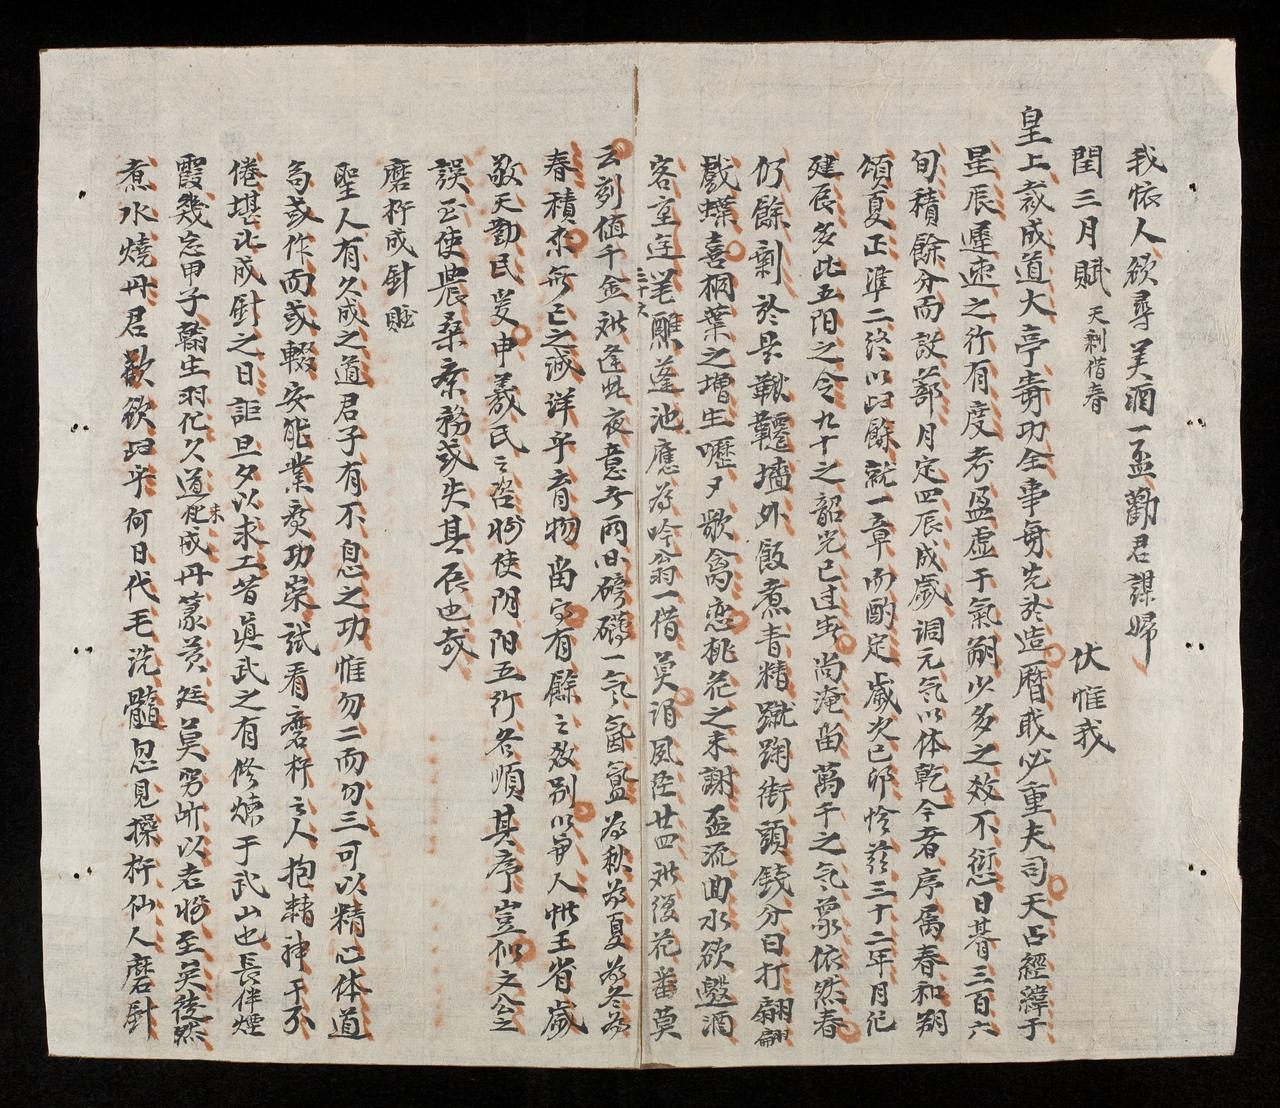 我依人欲尋美酒一盃勸君謀婦
閏三月賦 天剩借春 伏惟我
皇上裁成道大亭毒功全事每先於造曆政必重夫司天占經緯于
星辰遲速之行有度考盈虛于氣朔少多之效不愆日朞三百六
旬積餘分而設蔀月定四辰成歲調元氣以体乾今者序屬春和朔
頒夏正準二終以歸餘就一章而酌定歲次己卯恰茲三十二年月化
建辰多此五陽之令九十之韶光已过尚淹留萬千之气象依然春
仍餘剩於是鞦韆墻外飯煮青精蹴踘街頭錢分日打翩翩
戲蝶喜桐葉之增生嚦嚦歌禽恋桃花之未謝盃流曲水欲邀酒
客重筵蓬池應為吟翁一借莫謂風经廿四 後花番莫
云刻值千金 逢此夜意者兩曰磅礴一气氤氳為秋為夏為冬為
春積來無已之诚詳乎育物留定有餘之数別以爭人 王省歲
敬天勤民爰申羲民之咨 使阴阳五行各順其序豈似文公之
誤至使農桑条務或失其辰也哉
磨杵成針賦
聖人有久成之道君子有不息之功惟勿二而勿三可以精心体道
為或作而或輟安能業廣功崇試看磨杵之人抱精神于不
倦堪比成針之日詎旦夕以求工昔真武之有修煉于武山也長伴煙
霞幾忘甲子翻生羽化久道 未 化成丹篆黃庭莫穷所以老將至矣徒然
煮水燒丹君歡欲歸乎何日代毛洗髓忽見操杵仙人磨針